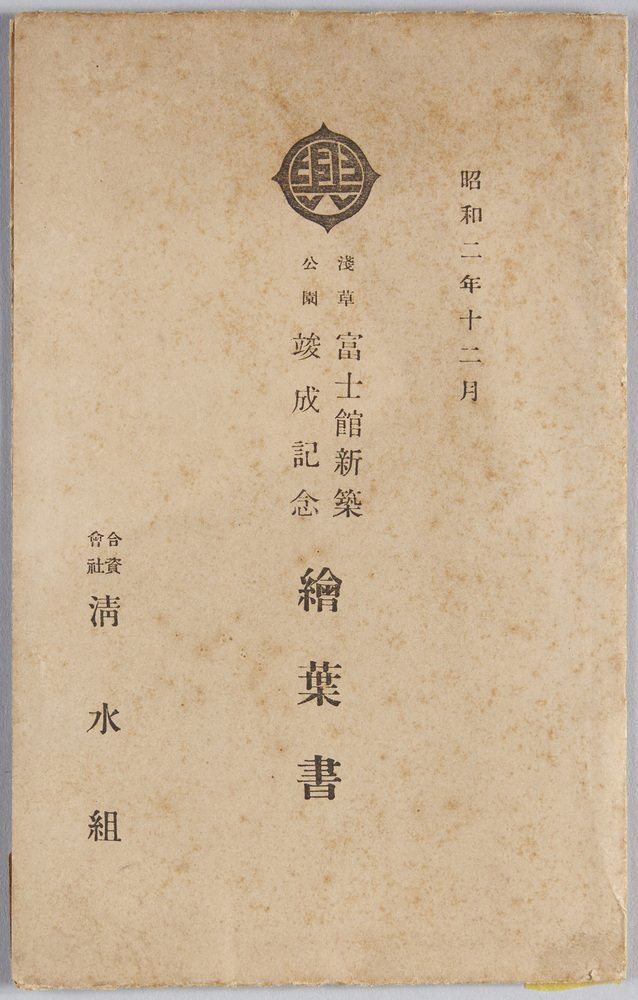 昭和二年十二月
興
淺草
公園
富士館新築
竣成記念
繪葉書
合資
會社
淸水組